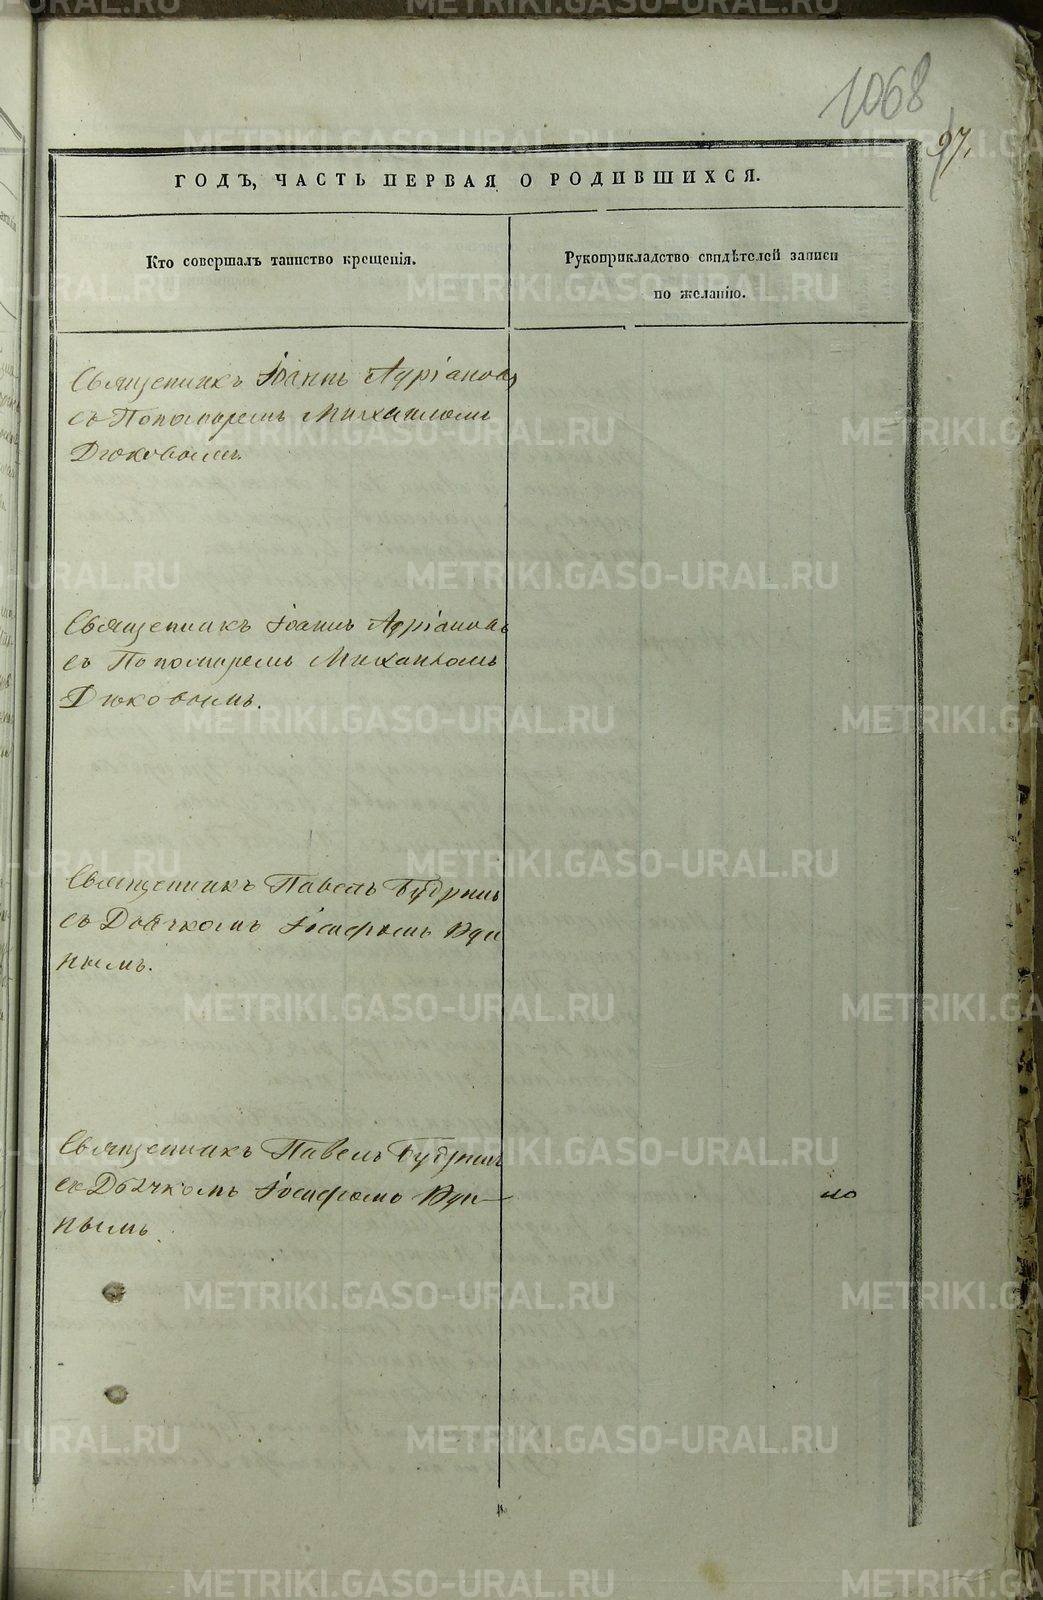 1068
97.
ГОДЪ, ЧАСТЬ ПЕРВАЯ О РОДИВШИХСЯ.
Кто совершалъ таинство крещенія.
Рукоприкладство свидѣтелей записи
по желанію.
Священникъ Іоаннъ Адріановъ
съ Пономаремъ Михаиломъ
Дюковымъ.
Священникъ Іоаннъ Адріановъ
съ Пономаремъ Михаиломъ
Дюковымъ.
Священникъ Павелъ Будринъ
съ Дьячкомъ Іосифомъ Уди
нымъ.
Священникъ Павелъ Будринъ
съ Дьячкомъ Іосифомъ Уди-
нымъ.
METRIKI.GASO-URAL.RU